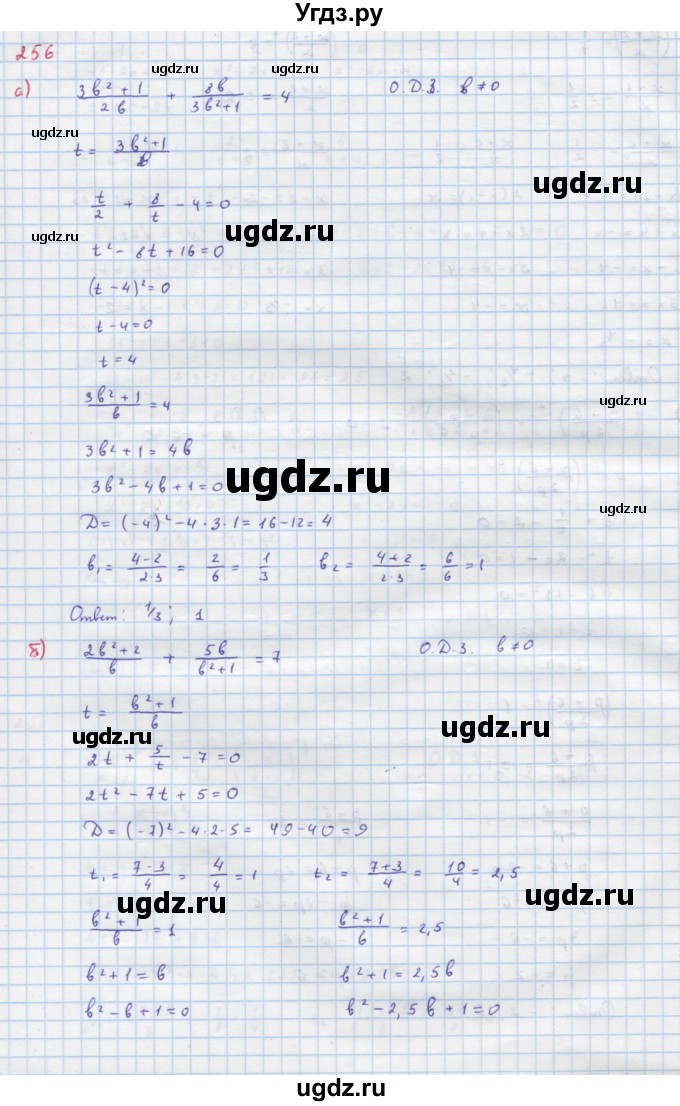 Угдз.ру
256
ugdz.ru ugdz.ru
а) (3в² + 1)/(2в) + 8в/(3в²+1) = 4 О.Д.З. в ≠ 0
ugdz.ru
t = (3в²+1)/в
ugdz.ru
t/2 + 8/t - 4 = 0
ugdz.ru ugdz.ru
t² - 8t + 16 = 0
(t - 4)² = 0
t - 4 = 0
t = 4
(3в² + 1)/в = 4
ugdz.ru
3в² + 1 = 4в
ugdz.ru
3в² - 4в + 1 = 0
ugdz.ru
D = (-4)² - 4 · 3 · 1 = 16 - 12 = 4
в₁ = (4 - 2)/(2·3) = 2/6 = 1/3 в₂ = (4 + 2)/(2·3) = 6/6 = 1
Ответ: 1/3; 1
б) (2в² + 2)/в + 5в/(в²+1) = 7 О.Д.З. в ≠ 0
t = (в² + 1)/в
ugdz.ru ugdz.ru
2t + 5/t - 7 = 0
2t² - 7t + 5 = 0
D = (-7)² - 4 · 2 · 5 = 49 - 40 = 9
t₁ = (7 - 3)/4 = 4/4 = 1 t₂ = (7 + 3)/4 = 10/4 = 2,5
ugdz.ru ugdz.ru
(в² + 1)/в = 1 (в² + 1)/в = 2,5
в² + 1 = в в² + 1 = 2,5в
в² - в + 1 = 0 в² - 2,5в + 1 = 0
ugdz.ru